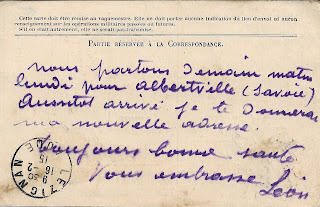 Cette carte doit être remise au vaguemestre. Elle ne doit porter aucune indication du lieu d'envoi ni aucun
renseignement sur les opérations militaires passées ou futures.
S'il en était autrement, elle ne serait pas transmise.
PARTIE RÉSERVÉE A LA CORRESPONDANCE.
nous partons demain matin
lundi pour Albertville (Savoie)
Aussitot arrivé je te donnerai
ma nouvelle adresse.
Toujours bonne santé
Vous embrasse Léon
LEZIGNAN
AUDE